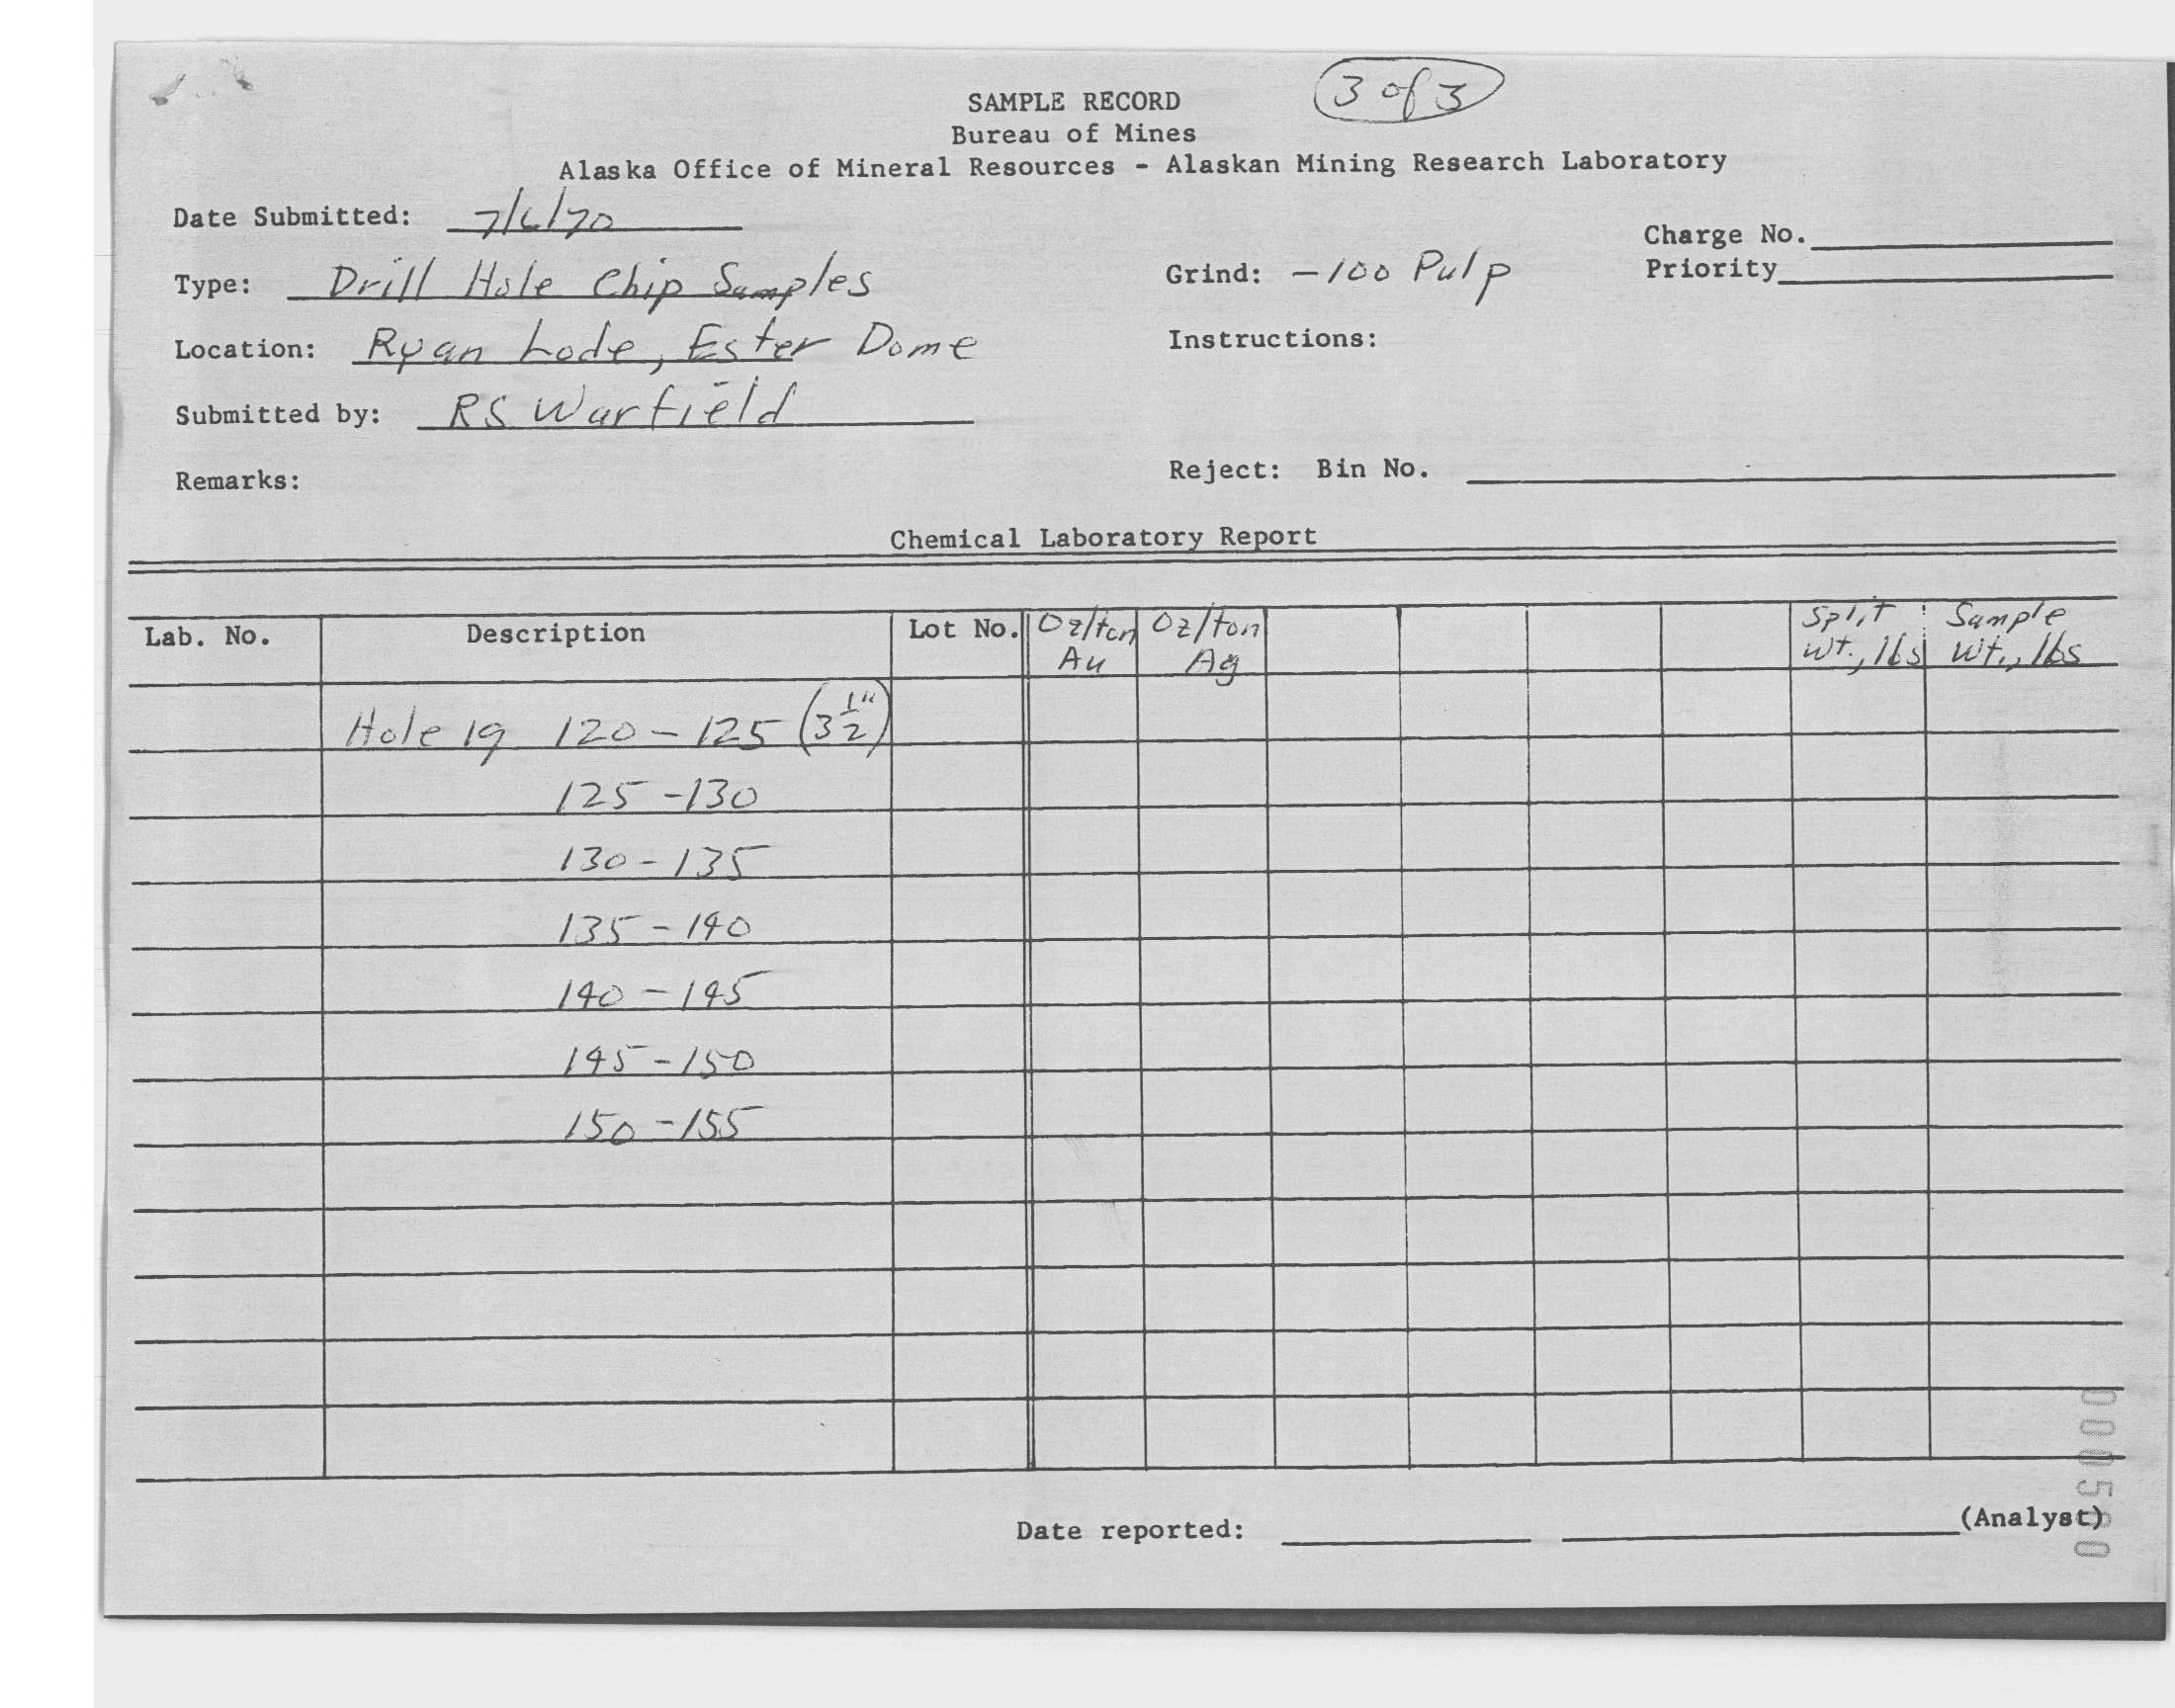 3 of 3
SAMPLE RECORD
Bureau of Mines
Alaska Office of Mineral Resources - Alaskan Mining Research Laboratory
Date Submitted: 7/6/70
Charge No.
Type: Drill Hole Chip Samples
Grind: -100 Pulp
Priority
Location: Ryan Lode, Ester Dome
Instructions:
Submitted by: RS Warfield
Remarks:
Reject: Bin No.
Chemical Laboratory Report
Lab. No. Description Lot No. Oz/ton Au Oz/ton Ag Split wt., lbs Sample wt., lbs
Hole 19 120-125 (3 1/2")
125-130
130-135
135-140
140-145
145-150
150-155
Date reported: (Analyst)